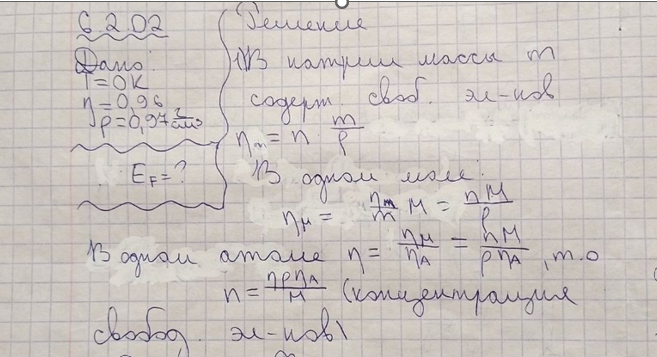 6.2.02
Дано:
T=0К
η=0,96
ρ=0,97 г/см³
E_F=?
Решение
1) В натрии массы m
содерж. своб. эл-нов
η_m = n m/ρ
В одном моле:
η_M = η_m/m M = nM/ρ
В одном атоме η = η_M/η_A = nM/ρη_A, т.о
n = ηρη_A/M (концентрация
свобод. эл-нов)